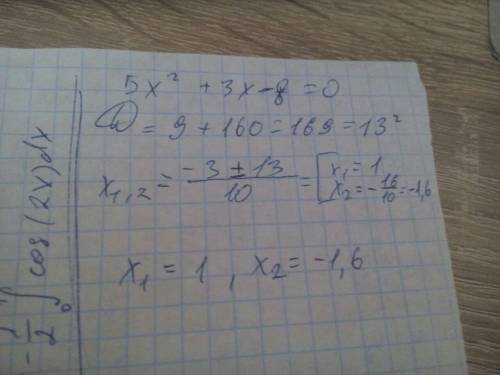 5x² + 3x - 8 = 0
D = 9 + 160 = 169 = 13²
x₁,₂ = (-3 ± 13)/10 = [x₁ = 1
x₂ = -16/10 = -1,6
x₁ = 1, x₂ = -1,6
cos(2x)dx